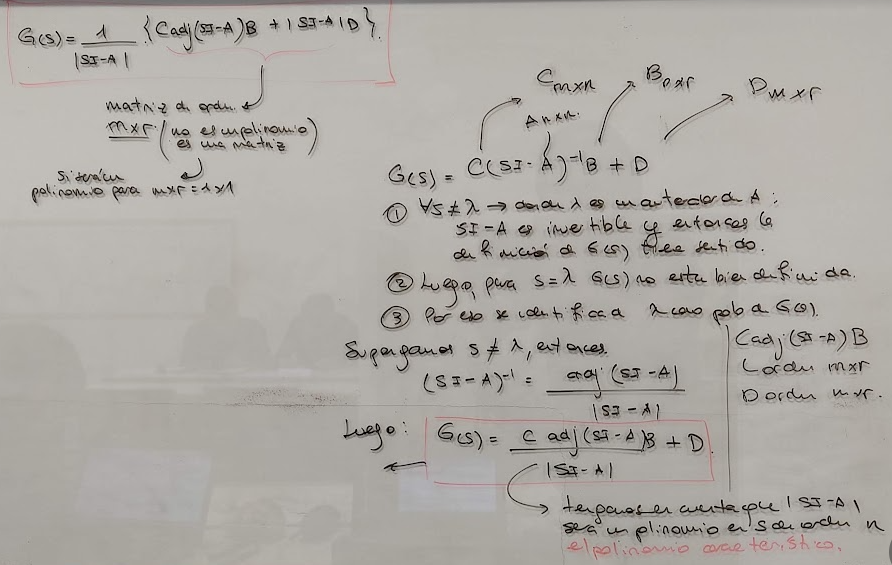 G(s) = 1/|SI-A| · {C adj(SI-A)B + |SI-A|D}.
matriz de orden
mxr (no es un polinomio
es una matriz)
si serán
polinomio para mxr = 1x1
C mxn B nxr D mxr
A nxn.
G(s) = C(SI-A)⁻¹B + D
① ∀s≠λ → donde λ es un autovalor de A :
SI-A es invertible y entonces la
definición de G(s) tiene sentido.
② Luego, para s=λ G(s) no esta bien definida.
③ Por eso se identifica a λ como polo de G(s).
Supongamos s ≠ λ, entonces.
(SI-A)⁻¹ = adj (SI-A) / |SI-A|
C adj(SI-A) B
orden mxr
D orden mxr.
Luego: G(s) = C adj(SI-A)B / |SI-A| + D.
tengamos en cuenta que |SI-A|
será un polinomio en s de orden n
el polinomio característico.